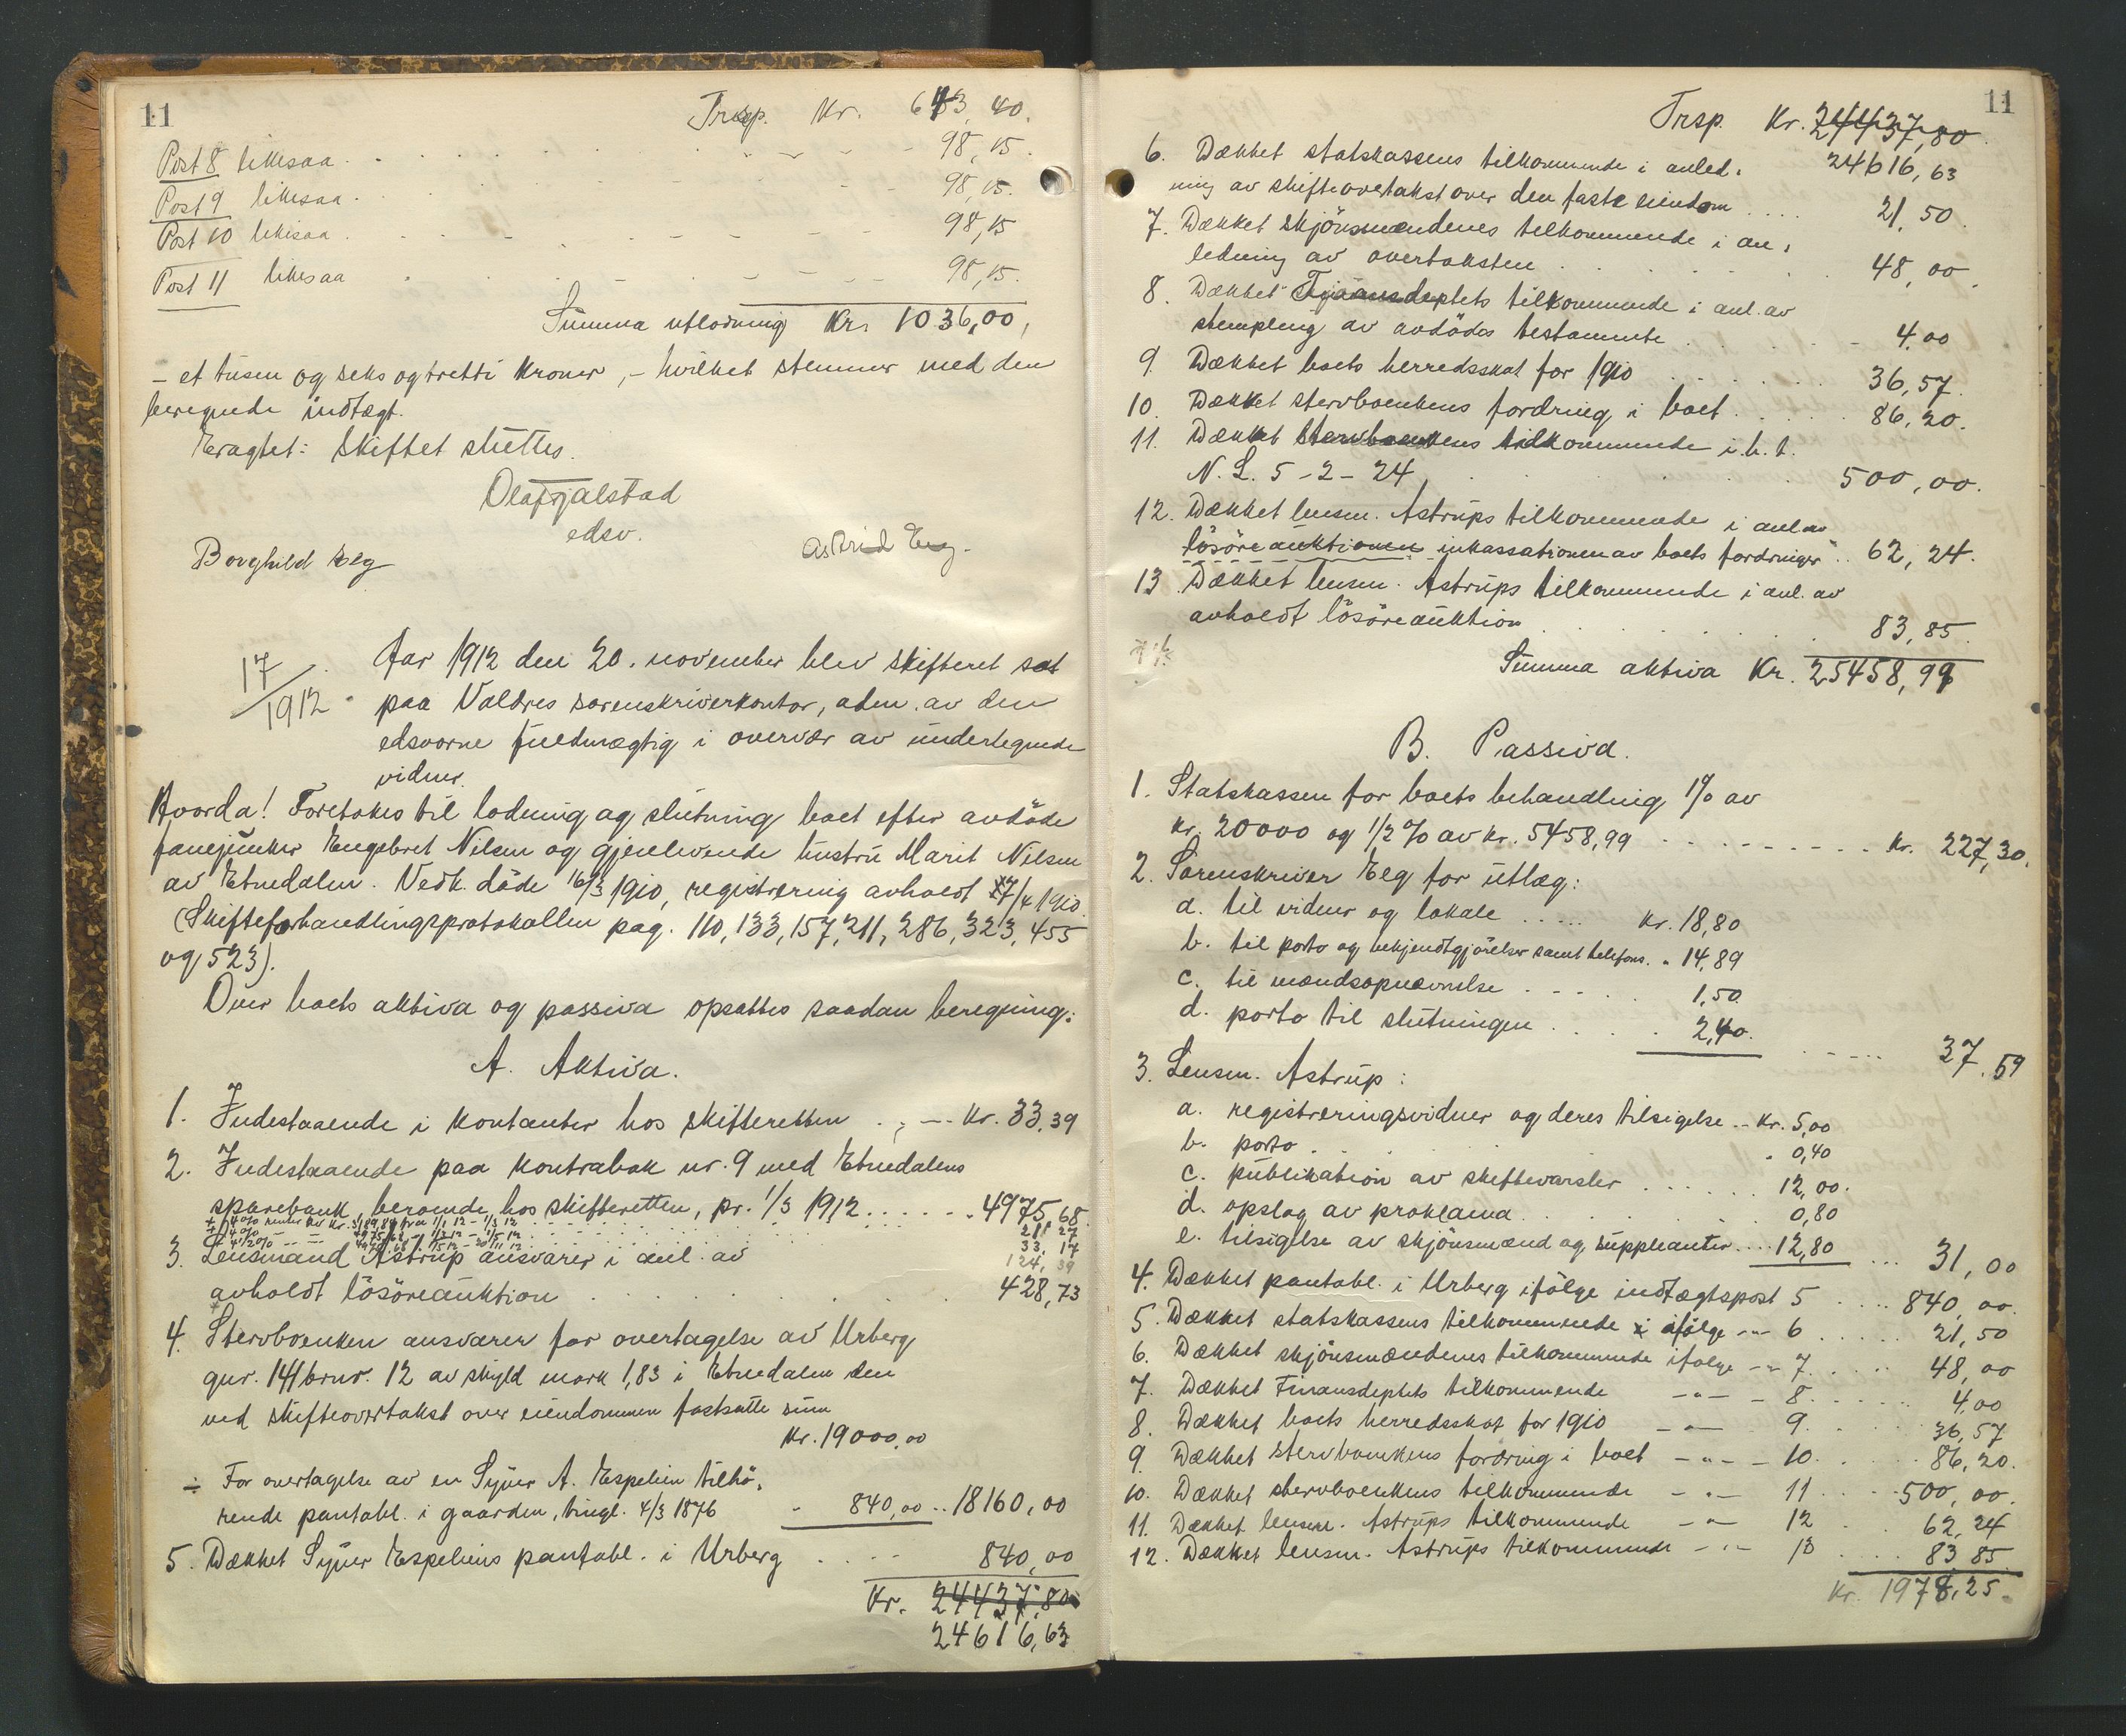 11
Trsp. Kr. 643,40.
Post 8 likesaa . . . 98,15.
Post 9 likesaa . . . 98,15.
Post 10 likesaa . . . 98,15
Post 11 likesaa . . . 98,15.
Summa utlodning Kr. 1036,00,
- et tusen og seks og tretti kroner, - hvilket stemmer med den
beregnede indtægt.
Eragtet: Skiftet sluttes.
Olaf Fjalstad
edsv.
Borghild Elg
Astrid Elg.
17/1912.
Aar 1912 den 20. november blev skifteret sat
paa Valdres sorenskriverkontor, adm. av den
edsvorne fuldmægtig i overvær av undertegnede
vidner.
Hvorda! Foretokes til lodning og slutning boet efter avdöde
fanejunker Engebret Nilsen og gjenlevende hustru Marit Nilsen
av Etnedalen. Vedk. döde 16/3 1910, registrering avholdt 27/4 1910.
(Skifteforhandlingsprotokollen pag. 110, 133, 157, 211, 286, 323, 455
og 523).
Over boets aktiva og passiva opsattes saadan beregning:
A. Aktiva.
1. Indestaaende i kontanter hos skifteretten . . . Kr. 33,39
2. Indestaaende paa kontrabok nr. 9 med Etnedalens
sparebank, beroende hos skifteretten, pr. 1/3 1912 . . . . . . 4975,68
+ 4% renter av kr. 3189,89 fra 1/1 12 - 1/3 12 . . . 21,27
+ 4% - - 4975,68 - 1/3 12 - 1/5 12 . . . 33,17
+ 4 1/2% - - 4975,68 - 1/5 12 - 20/11 12 . . . 124,39
3. Lensmand Astrup ansvarer i anl. av
avholdt lösöreauktion . . . 428,73
4. Stervboenken ansvarer for overtagelse av Urberg
gnr. 141 brnr. 12 av skyld mark 1,83 i Etnedalen den
ved skifteovertakst over eiendommen fastsatte sum
Kr. 19000,00
÷ For overtagelse av en Syver A. Espelien tilhö-
rende pantobl. i gaarden, tingl. 4/3 1876 - 840,00 .. 18160,00
5. Dækket Syver Espeliens pantobl. i Urberg . . . 840,00
Kr. 24437,80
24616,63
11
Trsp. Kr. 24437,80
24616,63
6. Dækket statskassens tilkommende i anled-
ning av skifteovertakst over den faste eiendom . . . . 21,50.
7. Dækket skjönsmændenes tilkommende i an-
ledning av overtaksten . . . 48,00.
8. Dækket Finansdeptets tilkommende i anl. av
stempling av avdödes testamente . . . 4,00
9. Dækket boets herredsskat for 1910 . . . 36,57.
10. Dækket stervboenkens fordring i boet . . . 86,20.
11. Dækket stervboenkens tilkommende i. h. t.
N. L. 5-2-24 . . . 500,00.
12. Dækket lensm. Astrups tilkommende i anl. av
lösöreauktionen inkassationen av boets fordringer .. 62,24.
13. Dækket lensm. Astrups tilkommende i anl. av
avholdt lösöreauktion . . . 83,85.
Summa aktiva Kr. 25458,99
B. Passiva.
1. Statskassen for boets behandling 1% av
kr. 20000 og 1/2% av kr. 5458,99 . . . Kr. 227,30.
2. Sorenskriver Elg for utlæg:
a. til vidner og lokale . . . Kr. 18,80
b. til porto og bekjendtgjörelser samt telefons. " 14,89
c. til mændsopnævnelse . . . 1,50.
d. porto til slutningen . . . 2,40. . . . 37,59
3. Lensm. Astrup:
a. registreringsvidner og deres tilsigelse .. Kr. 5,00
b. porto . . . " 0,40
c. publikation av skiftevarsler . . . 12,00.
d. opslag av proklama . . . 0,80
e. tilsigelse av skjönsmænd og suppleanter . . . 12,80 . . . 31,00
4. Dækket pantobl. i Urberg ifölge indtægtspost 5 . . . 840,00.
5. Dækket statskassens tilkommende ifölge -"- 6 . . . 21,50
6. Dækket skjönsmændenes tilkommende ifölge -"- 7 . . . 48,00
7. Dækket Finansdeptets tilkommende -"- 8 . . . 4,00
8. Dækket boets herredsskat for 1910 -"- 9 . . . 36,57
9. Dækket stervboenkens fordring i boet -"- 10 . . . 86,20.
10. Dækket stervboenkens tilkommende -"- 11 . . . 500,00.
11. Dækket lensm. Astrups tilkommende -"- 12 . . . 62,24
12. Dækket lensm. Astrups tilkommende -"- 13 . . . 83,85
Kr. 1978,25.